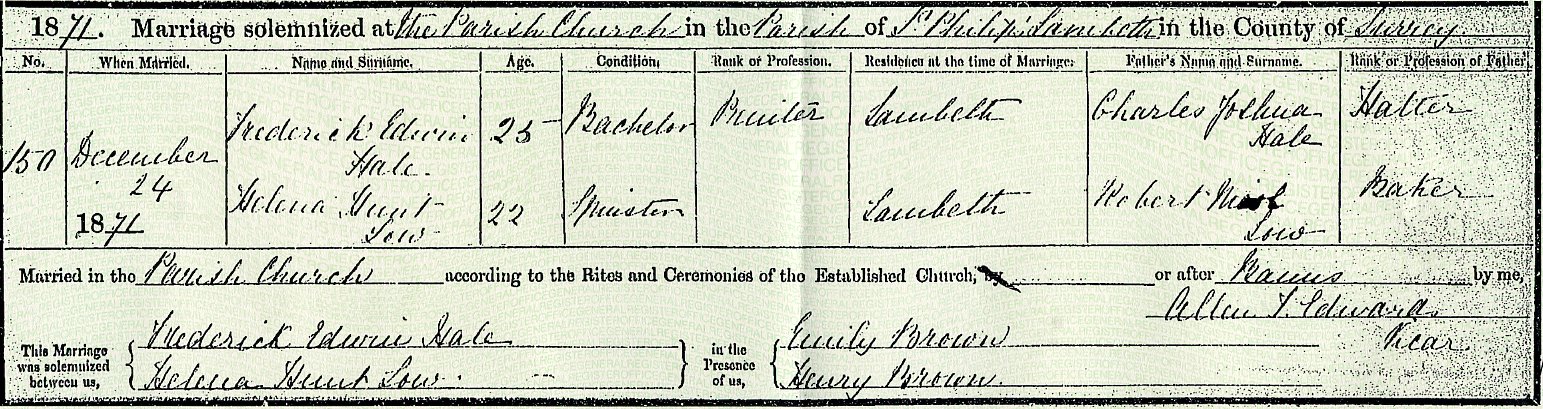 1871. Marriage solemnized at the Parish Church in the Parish of St Philip Lambeth in the County of Surrey
No. When Married. Name and Surname. Age. Condition. Rank or Profession. Residence at the time of Marriage. Father's Name and Surname. Rank or Profession of Father.
150 December 24 1871
Frederick Edwin Hale 25 Bachelor Printer Lambeth Charles Joshua Hale Hatter
Helena Hunt Low 22 Spinster Lambeth Robert Low Baker
Married in the Parish Church according to the Rites and Ceremonies of the Established Church, by or after Banns by me,
Allen T. Edwards
Vicar
This Marriage was solemnized between us,
Frederick Edwin Hale
Helena Hunt Low.
in the Presence of us,
Emily Brown
Henry Brown.